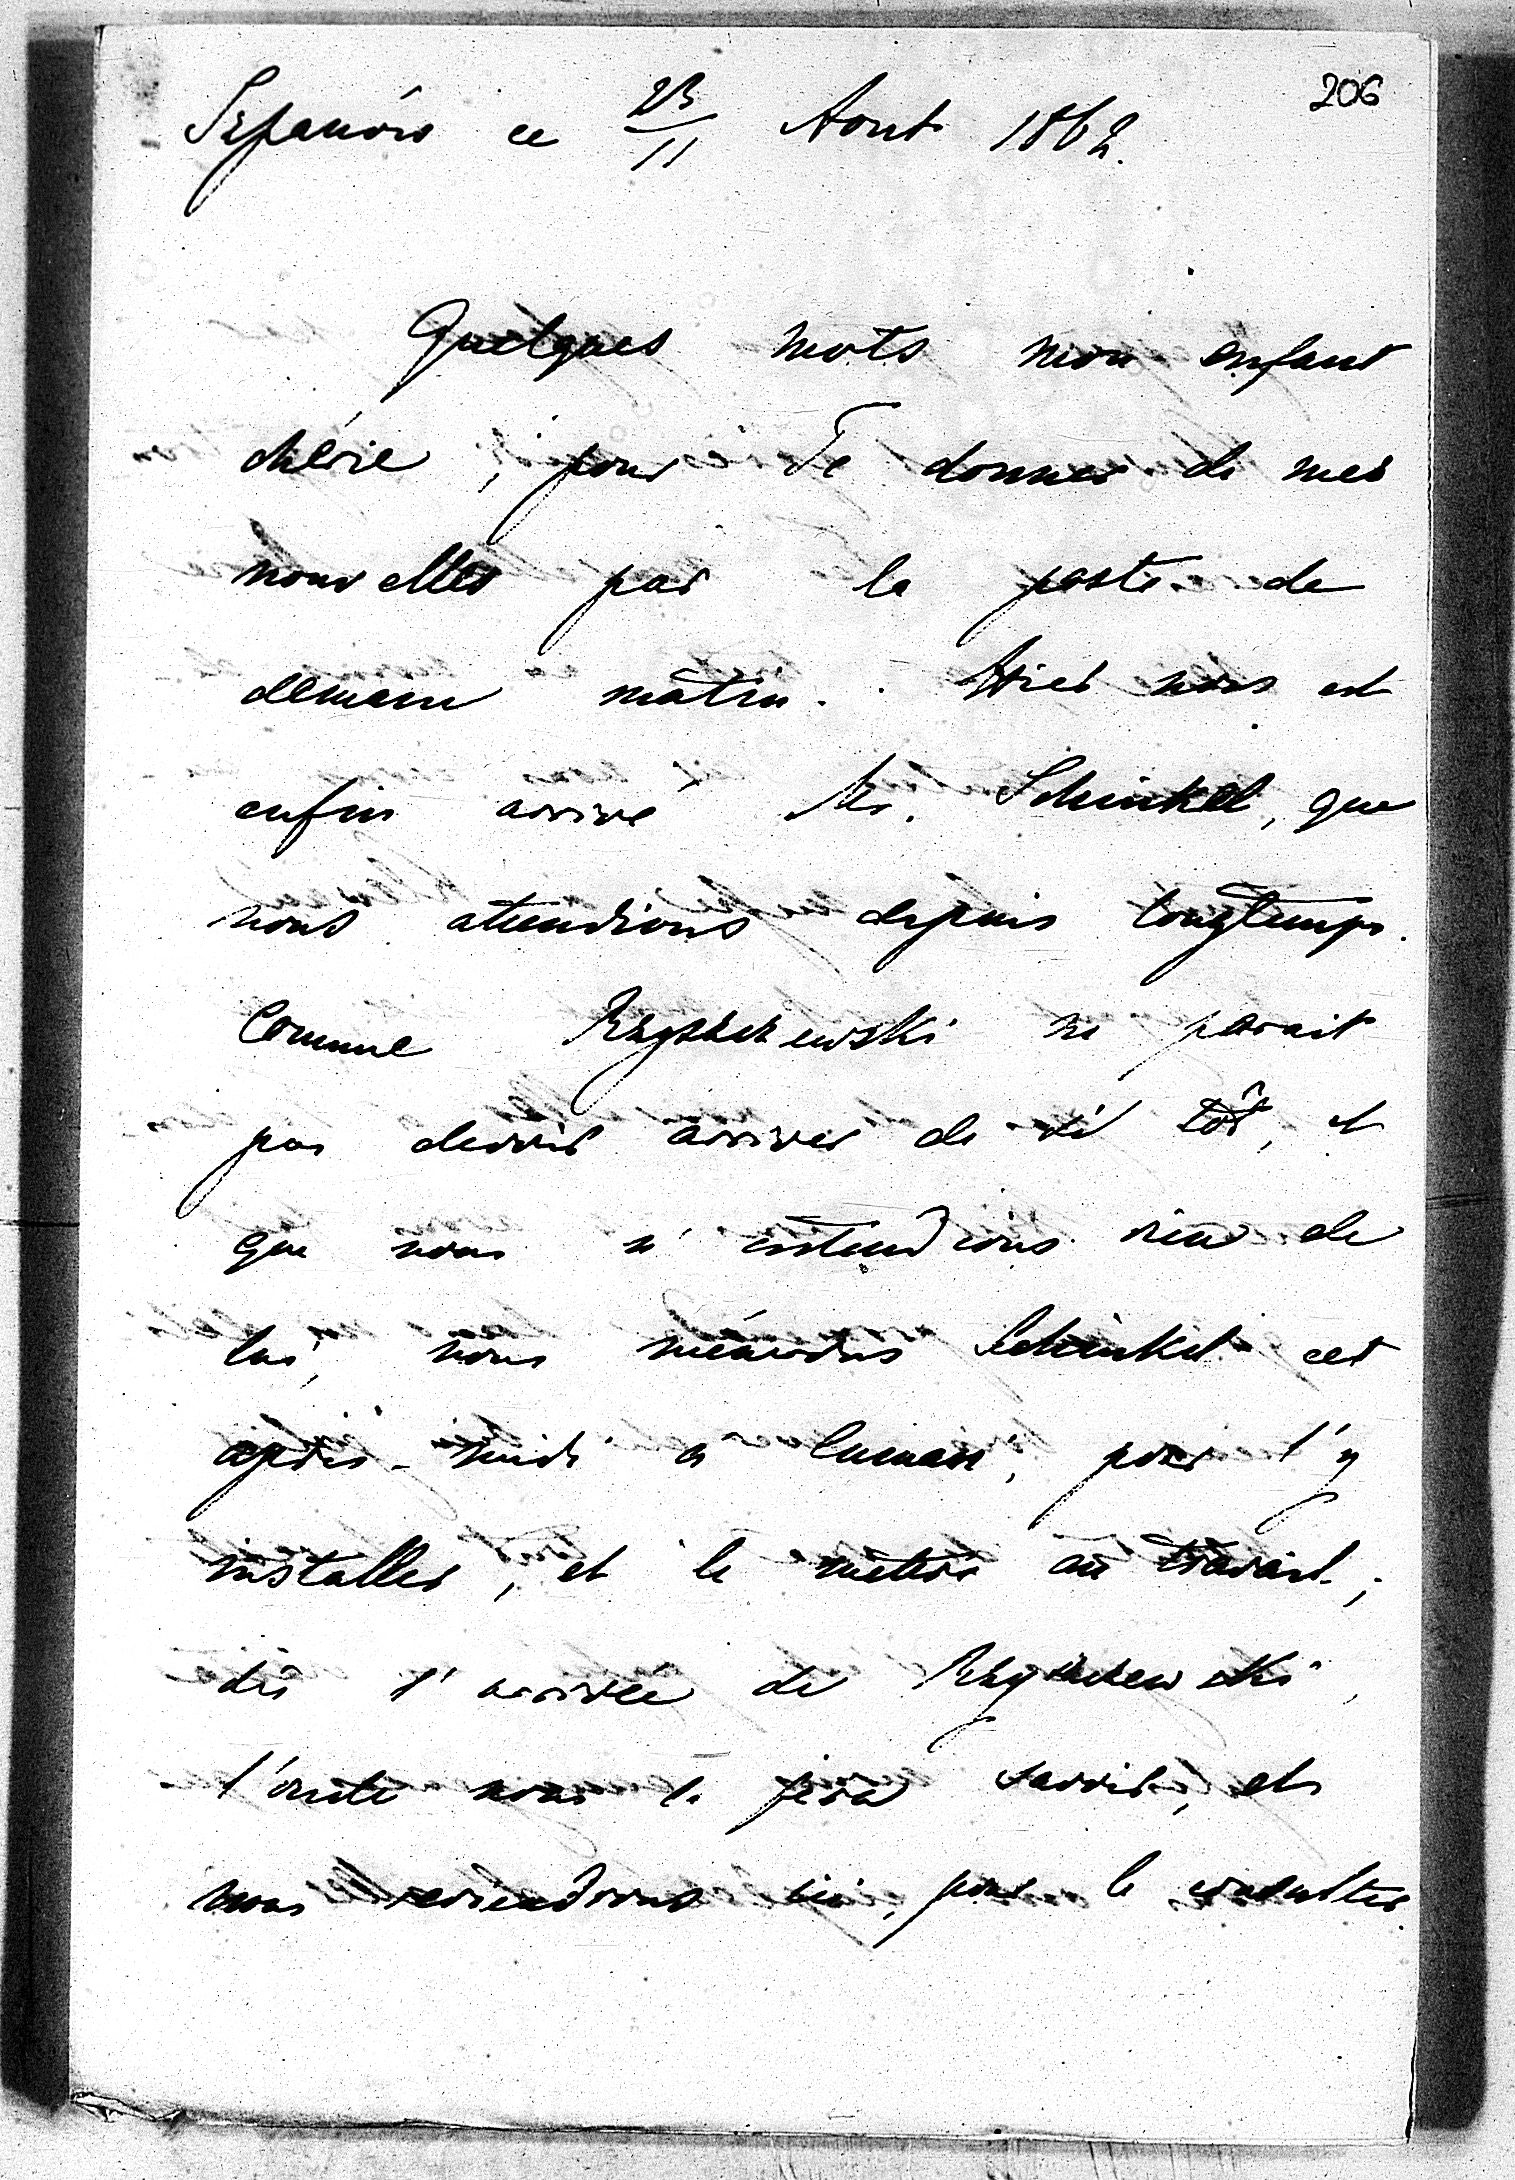 206
Szpanów ce 23/11 Aout 1862.
Quelques mots mon enfant
chérie, pour Te donner de mes
nouvelles par la poste de
demain matin. Hier nous est
enfin arrivé Mr. Schinkel, que
nous attendions depuis longtemps.
Comme Rzyszczewski ne parait
pas devoir arriver de si tôt, et
que nous n'entendions rien de
lui, nous menons Schinkel cet
après-midi à, pour l'y
installer, et le mettre au travail;
dès l'arrivée de Rzyszczewski,
nous le fera savoir, et
nous reviendrons ici, pour le consulter.